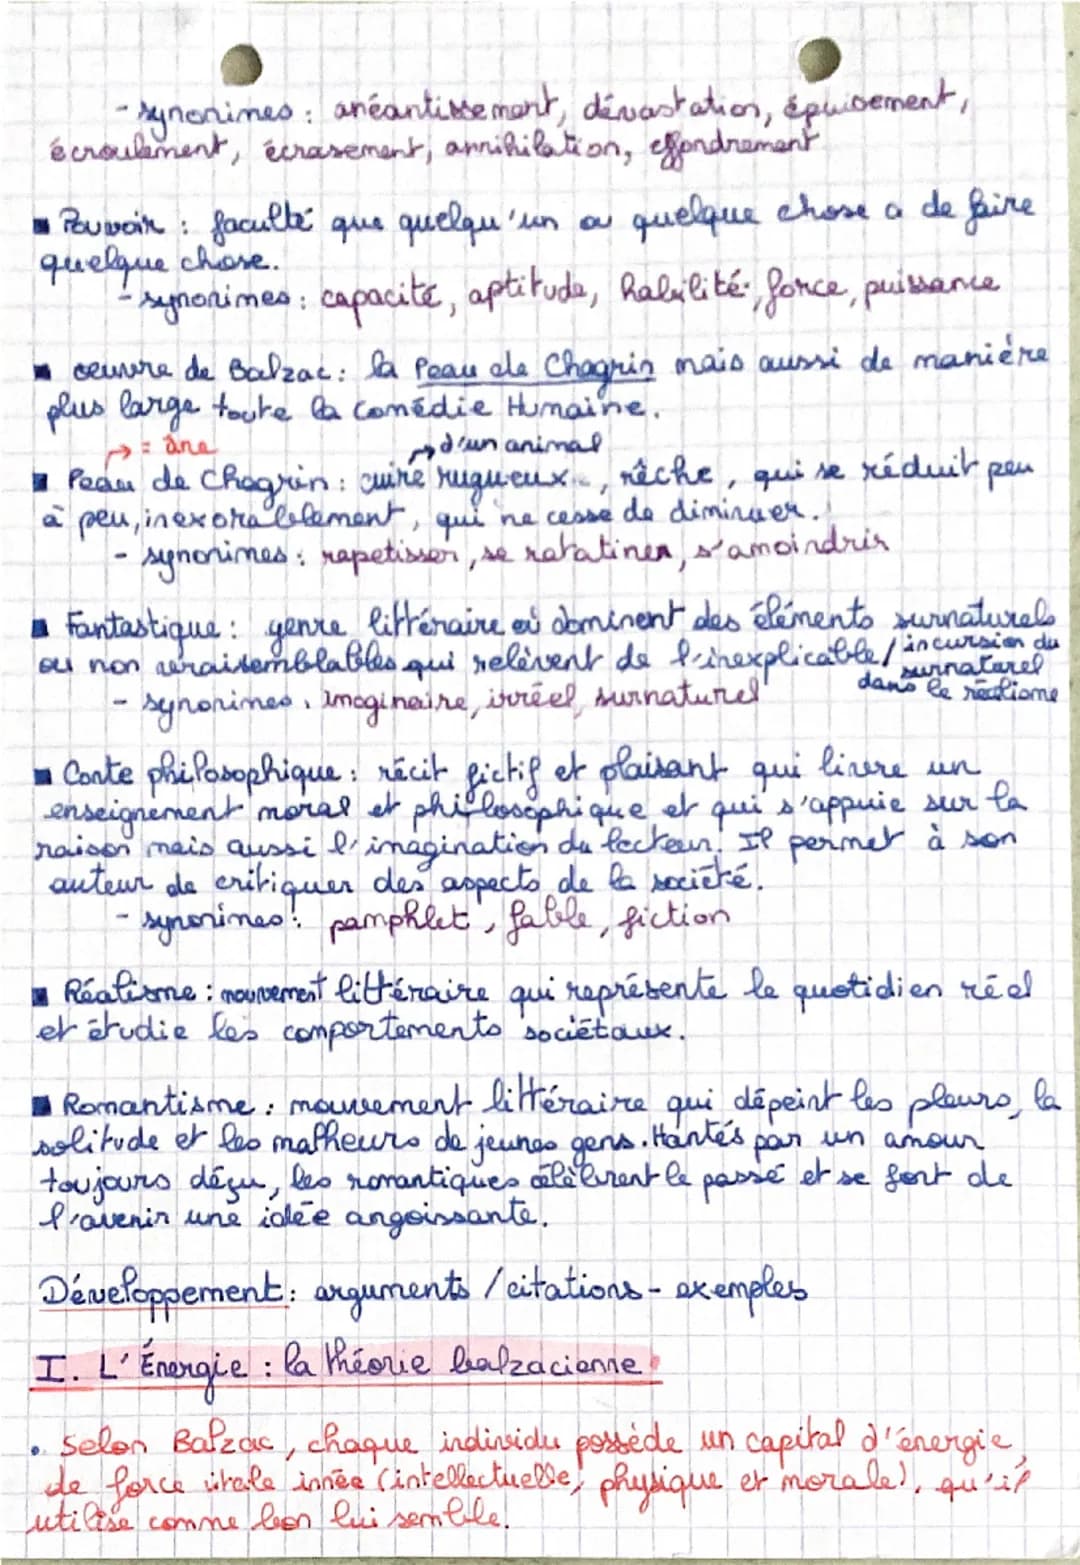 - synonimes : anéantissement, dévastation, épuisement,
écroulement, écrasement, annihilation, effondrement
■ Pouvoir : faculté que quelqu'un ou quelque chose a de faire
quelque chose.
- synonimes : capacité, aptitude, habilité, force, puissance
■ oeuvre de Balzac : la Peau de Chagrin mais aussi de manière
plus large toute la Comédie Humaine.
→ = âne
→ d'un animal
■ Peau de Chagrin : cuire rugueux, rêche, qui se réduit peu
à peu, inexorablement, qui ne cesse de diminuer.
- synonimes : rapetisser, se ratatiner, s'amoindrir
■ Fantastique : genre littéraire où dominent des éléments surnaturels
ou non vraisemblables qui relèvent de l'inexplicable / incursion du
surnaturel
dans le réalisme
- synonimes : imaginaire, irréel, surnaturel
■ Conte philosophique : récit fictif et plaisant qui livre un
enseignement moral et philosophique et qui s'appuie sur la
raison mais aussi l'imagination du lecteur. Il permet à son
auteur de critiquer des aspects de la société.
- synonimes : pamphlet, fable, fiction
■ Réalisme : mouvement littéraire qui représente le quotidien réel
et étudie les comportements sociétaux.
■ Romantisme : mouvement littéraire qui dépeint les pleurs, la
solitude et les malheurs de jeunes gens. Hantés par un amour
toujours déçu, les romantiques célèbrent le passé et se font de
l'avenir une idée angoissante.
Développement : arguments / citations - exemples
I. L'Énergie : la théorie balzacienne
• Selon Balzac, chaque individu possède un capital d'énergie,
de force vitale innée (intellectuelle, physique et morale), qu'il
utilise comme bon lui semble.